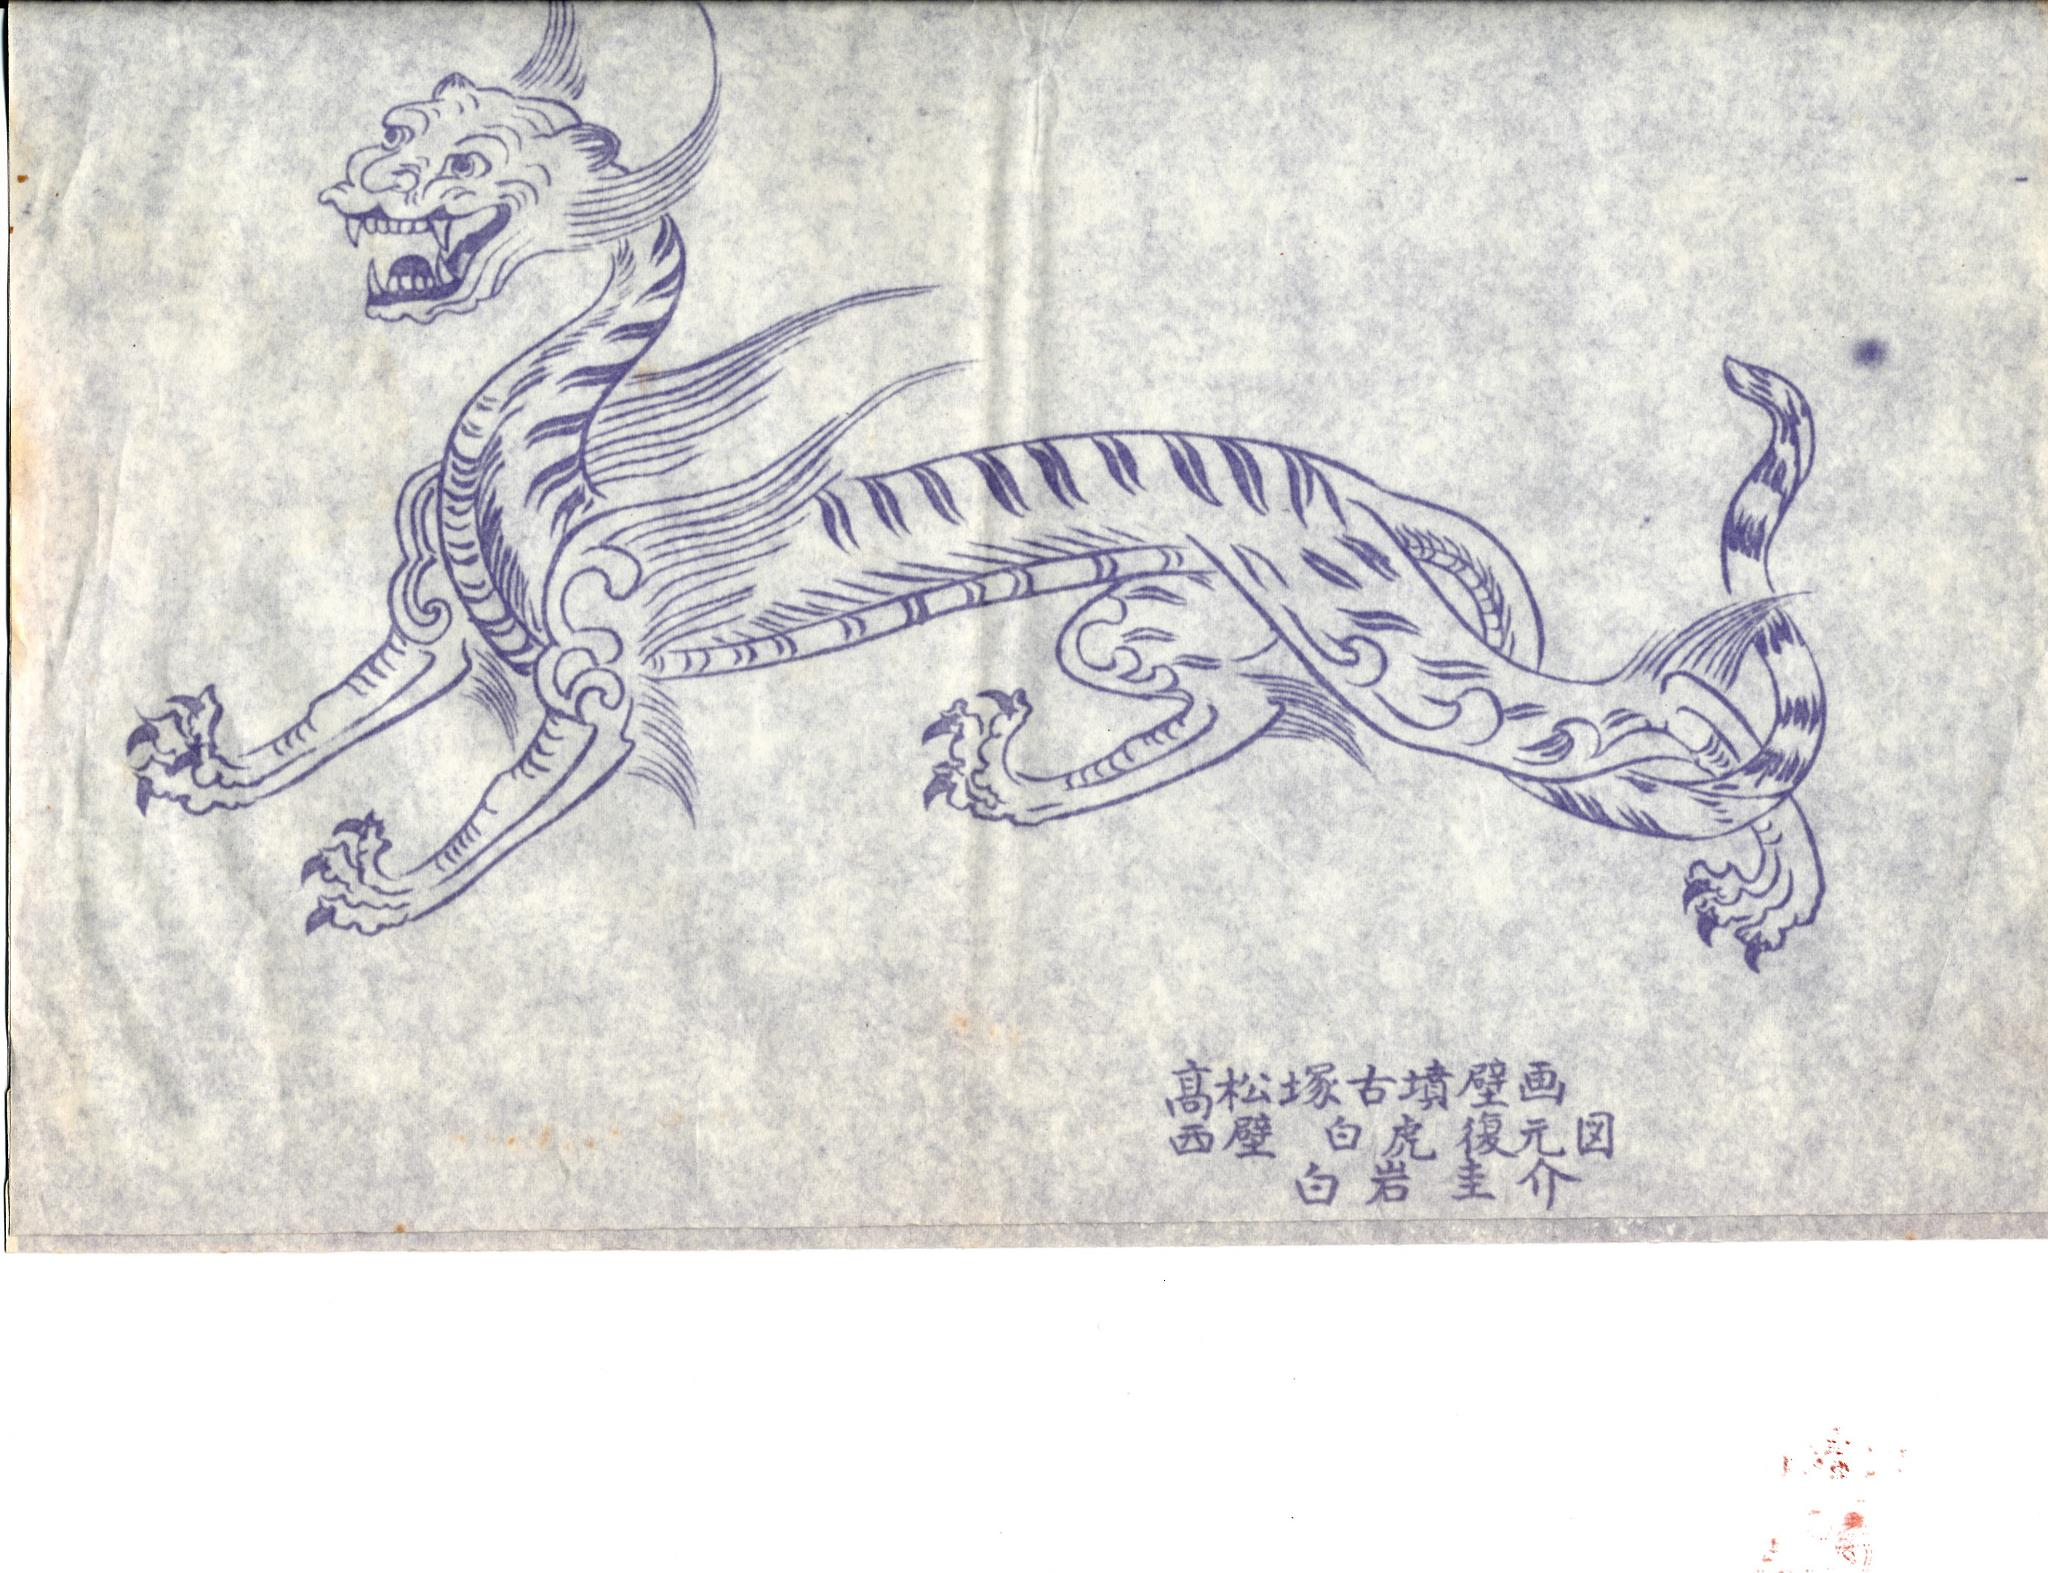 高松塚古墳壁画
西壁 白虎復元図
白岩圭介